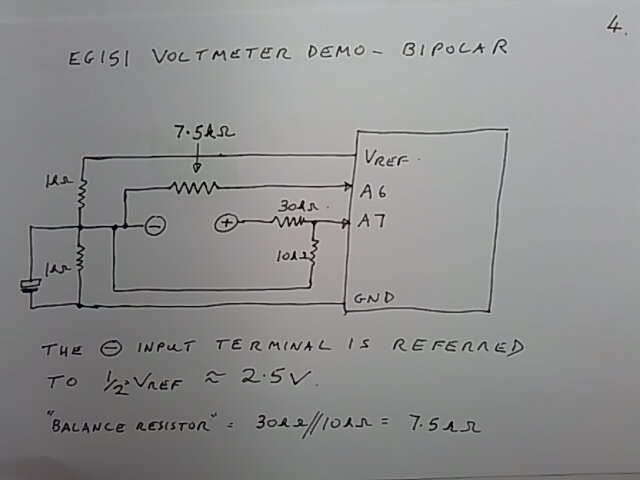 4.
EGISI VOLTMETER DEMO - BIPOLAR
7.5kΩ
VREF.
1kΩ
A6
30kΩ.
- + A7
10kΩ
1kΩ
GND
THE ⊖ INPUT TERMINAL IS REFERRED
TO 1/2 VREF ≈ 2.5V.
"BALANCE RESISTOR" = 30kΩ//10kΩ = 7.5kΩ